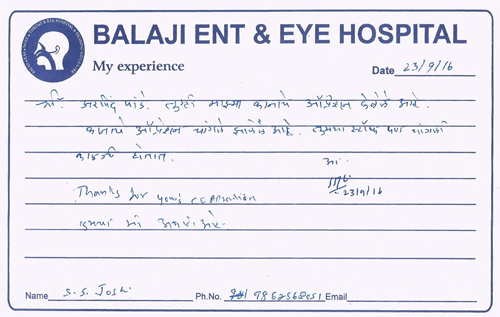 BALAJI ENT & EYE HOSPITAL
My experience
Date 23/9/16
श्री. अरविंद पांडे. तुम्ही माझ्या कानाचे ऑप्रेशन केलेले आहे.
कानाचे ऑप्रेशन चांगले झालेले आहे. तुमचा स्टॉफ पण चांगली
काळजी घेतात.
23/9/16
Thanks for your cooperation
Name S. S. Joshi Ph.No. Email